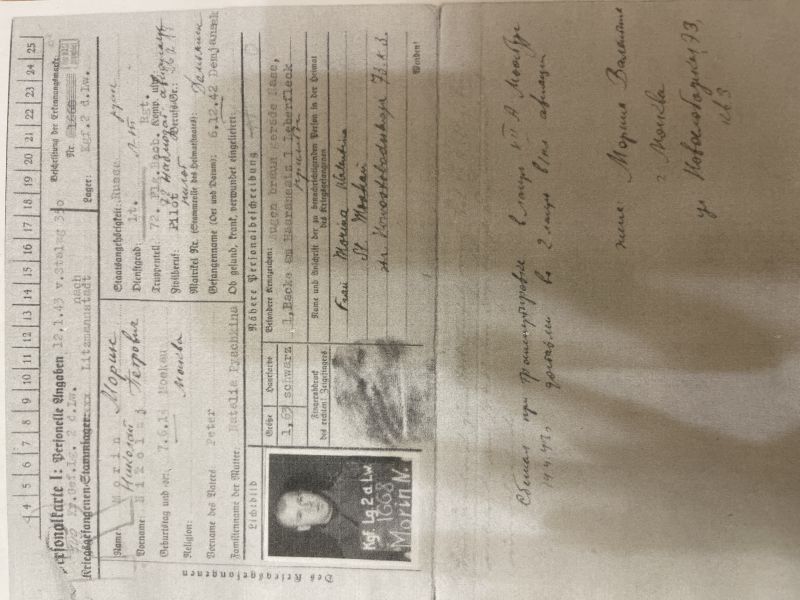 1 4 5 6 7 8 9 10 11 12 13 14 15 16 17 18 19 20 21 22 23 24 25
Personalkarte I: Personelle Angaben
12.1.43 v. Stalag
Kr.Gef.Lg. 2 d.Lw. nach
Kriegsgefangenen-Stammlager: Litzmannstadt
Beschriftung der Erkennungsmarke
Nr. 1668
Lager: Kgf.2 d.Lw.
Des Kriegsgefangenen
Name: Morin
Морин
Vorname: Nikolaj
Николай Петрович
Geburtstag und -ort: 7.6.15 Moskau
Москва
Religion:
Vorname des Vaters: Peter
Familienname der Mutter: Natalia Pyschkina
Staatsangehörigkeit: Russe
Dienstgrad: Lt.
Truppenteil: 72. Flg.Aob. Rgt.
Komp. usw.:
Zivilberuf: Pilot
пилот
Berufs-Gr.:
Matrikel Nr. (Stammrolle des Heimatstaates):
Gefangennahme (Ort und Datum): 6.12.42 Demjansk
Демьянск
Ob gesund, krank, verwundet eingeliefert:
Lichtbild
Kgf Lg 2 d Lw
1668
Morin N.
Nähere Personalbeschreibung
Größe
1,69
Haarfarbe
schwarz
Besondere Kennzeichen: Augen braun gerade Nase,
l.Backe am Haaransatz 1 Leberfleck
Fingerabdruck
des rechten! Zeigefingers
Name und Anschrift der zu benachrichtigenden Person in der Heimat
des Kriegsgefangenen
Frau Morina Valentina
St. Moskau
str. Nowoslobodskaja 73.k.3.
Wenden!
Сбежал при транспортировке в лагерь
19.4.43, доставлен во 2 лагерь в/пл авиации
жене Морина Валентине
г. Москва
ул Новослободская 73,
кв 3